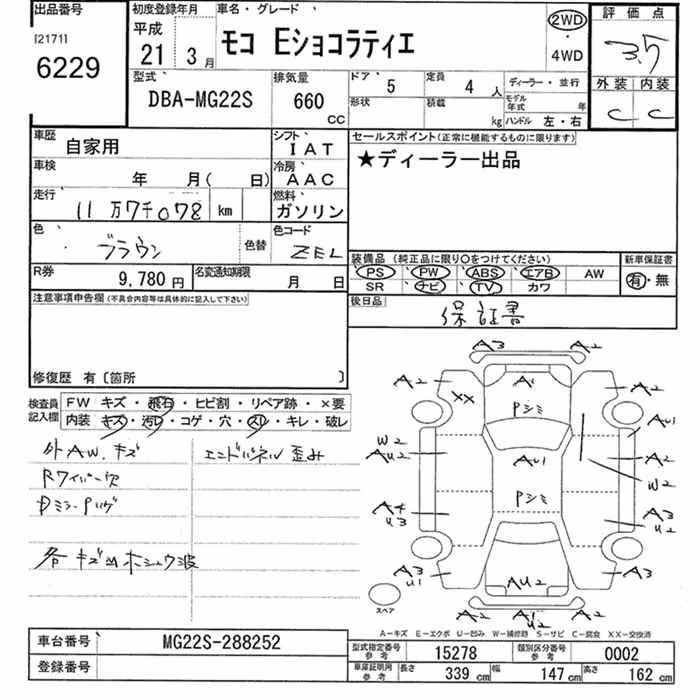 出品番号
[2171]
6229
初度登録年月
平成
21年 3月
車名・グレード
モコ Eショコラティエ
2WD
・
4WD
評価点
3.5
外装 内装
C C
型式
DBA-MG22S
排気量
660
CC
ドア 5
定員 4人
形状
積載 kg
ディーラー・並行
モデル年式 年
ハンドル 左・右
車歴 自家用
シフト IAT
車検 年 月( 日)
冷房 AAC
走行 11万7千078 km
燃料 ガソリン
色 ブラウン
色替
色コード ZEL
R券 9,780円
名変通知期限 月 日
セールスポイント(正常に機能するものに限ります)
★ディーラー出品
装備品(純正品に限り○をつけてください)
PS PW ABS エアB AW
SR ナビ TV カワ
新車保証書
有・無
後日品
保証書
注意事項申告欄(不具合内容等は具体的に記入して下さい)
修復歴 有〔箇所 〕
検査員記入欄
FW キズ・飛石・ヒビ割・リペア跡・×要
内装 キズ・汚レ・コゲ・穴・スレ・キレ・破レ
外AW.キズ
エンドパネル歪み
Rワイパー欠
各キズ凹ホシュウ波
A3 A2
A2 A1 A2
XX Pシミ
AU1
W2
AU2 AU1 A2
W2
Pシミ
A4
U3
A3
U2
A3
U1 AU2 A3
スペア
A2 A1
U2 A2
A-キズ E-エクボ U-凹み W-補修跡 S-サビ C-腐食 XX-交換済
車台番号 MG22S-288252
登録番号
型式指定番号 参考 15278
類別区分番号 参考 0002
車庫証明用 参考 長さ 339cm 幅 147cm 高さ 162cm